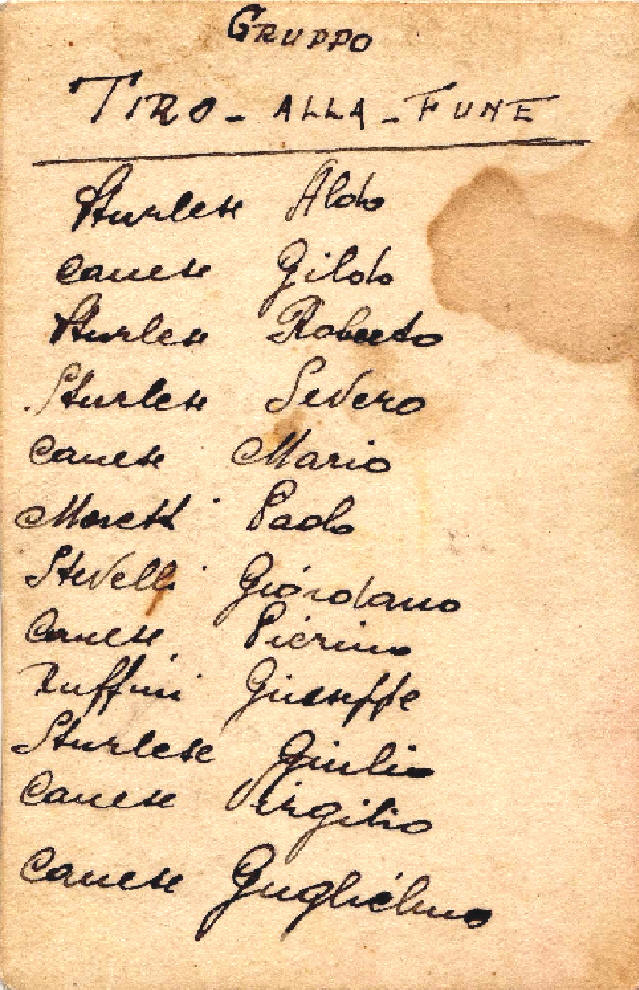 GRUPPO
TIRO - ALLA - FUNE
Sturlese Aldo
Canese Gildo
Sturlese Roberto
Sturlese Severo
Canese Mario
Moretti Paolo
Stevelli Giordano
Canese Pierino
Ruffini Giuseppe
Sturlese Giulio
Canese Virgilio
Canese Guglielmo